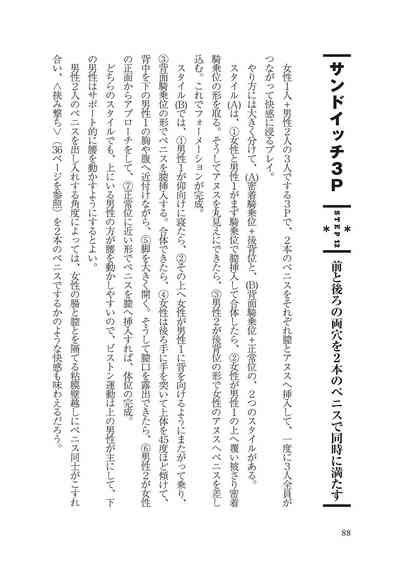 サンドイッチ3P
STEP 12
前と後ろの両穴を2本のペニスで同時に満たす
女性1人+男性2人の3人でする3Pで、2本のペニスをそれぞれ膣とアヌスへ挿入して、一度に3人全員が
つながって快感に浸るプレイ。
やり方には大きく分けて、(A)密着騎乗位+後背位と、(B)背面騎乗位+正常位の、2つのスタイルがある。
スタイル(A)は、①女性と男性1がまず騎乗位で膣挿入して合体したら、②女性が男性1の上へ覆い被さり密着
騎乗位の形を取る。そうしてアヌスを丸見えにできたら、③男性2が後背位の形で女性のアヌスへペニスを差し
込む。これでフォーメーションが完成。
スタイル(B)では、①男性1が仰向けに寝たら、②その上へ女性が男性1に背を向けるようにまたがって乗り、
③背面騎乗位の形でペニスを膣挿入する。合体できたら、④女性は後ろ手に手を突いて上体を45度ほど傾けて、
背中を下の男性1の胸や腹へ近付けながら、⑤脚を大きく開く。そうして膣口を露出できたら、⑥男性2が女性
の正面からアプローチをして、⑦正常位に近い形でペニスを膣へ挿入すれば、体位の完成。
どちらのスタイルでも、上にいる男性の方が腰を動かしやすいので、ピストン運動は上の男性が主にして、下
の男性はサポート的に腰を動かすようにするとよい。
男性2人のペニスを出し入れする角度によっては、女性の腸と膣とを隔てる粘膜壁越しにペニス同士がこすれ
合い、〈挟み撃ち〉(36ページを参照)を2本のペニスでするかのような快感も味わえるだろう。
88